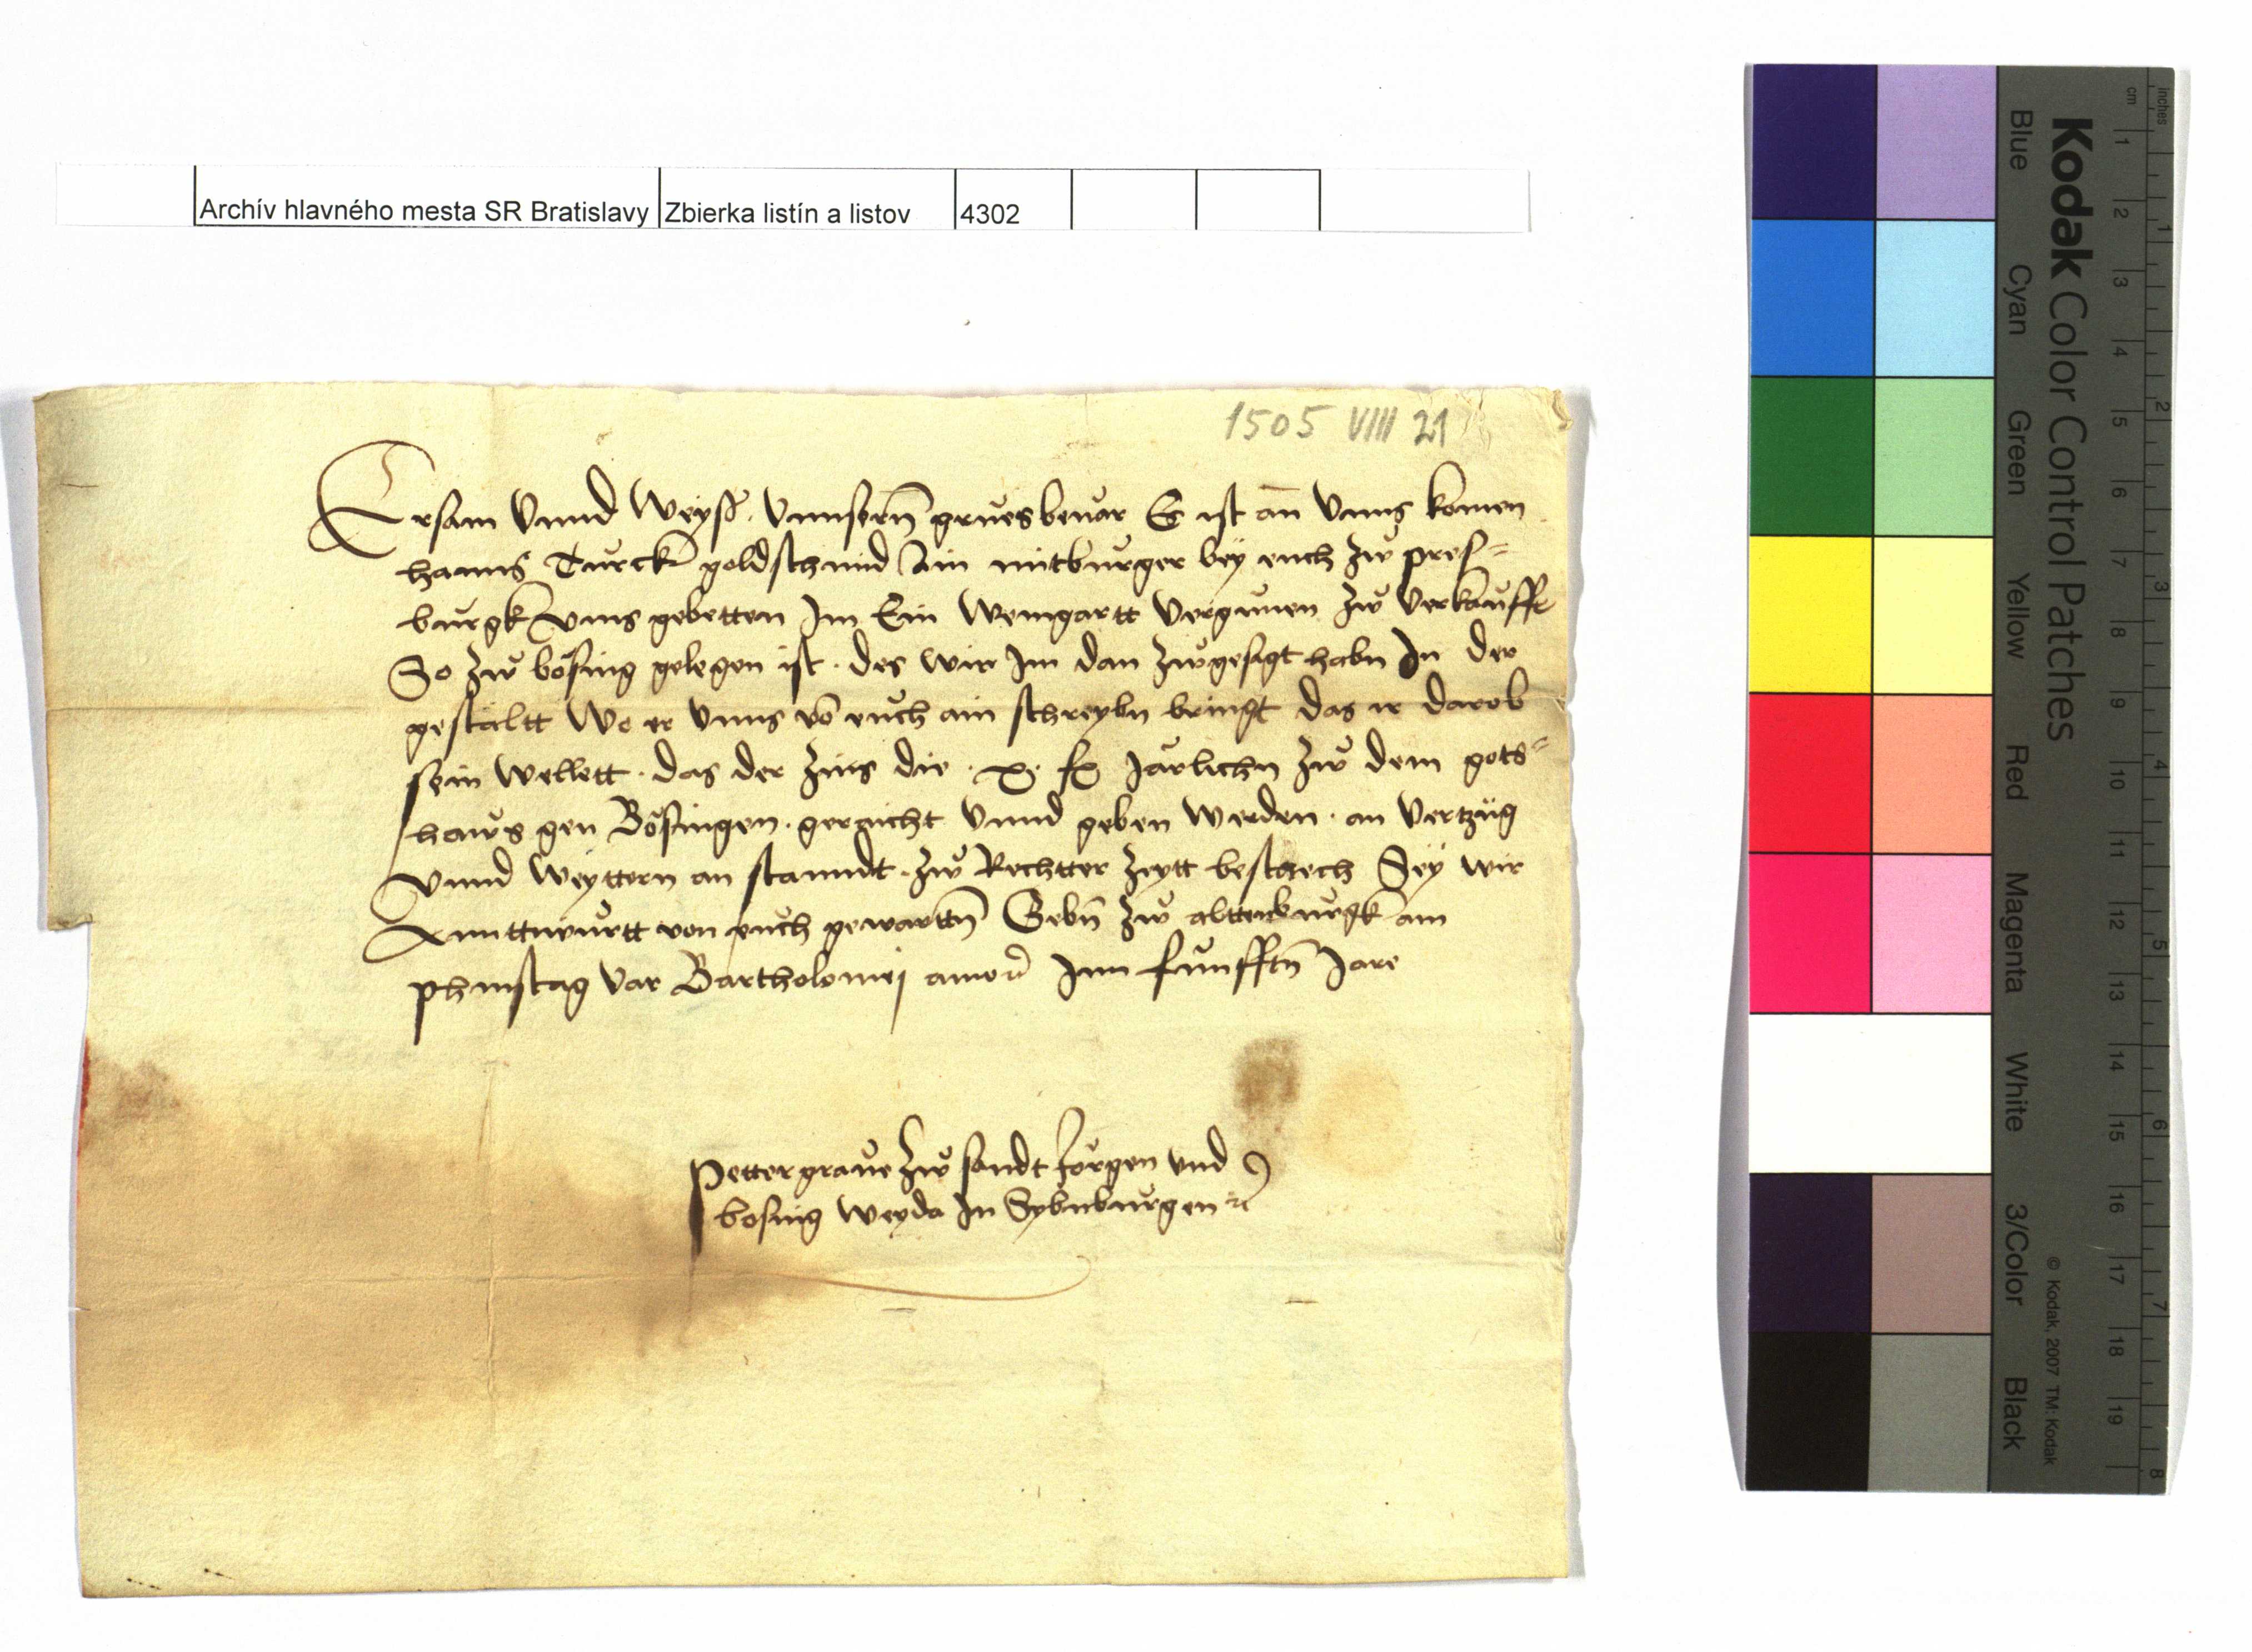 Archív hlavného mesta SR Bratislavy Zbierka listín a listov 4302
1505 VIII 21
Ersam Vnnd Weyß. Vnnsern̄ grues beuar Es ist an̄ Vnns komen
hanns Turck goldschmid Ain mitburger bey euch zw pres=
burgk Vnns gebetten Im Ein Weingartt Vergunen zw Verkauffe
So zw bösing gelegen ist. des wir Im dan zwgesagt habn In der
gestaltt Wo er Vnns vō euch ain schreybn bringt das ir darob
sein Wellett. das der zins die . x. Jarlichn zw dem gots=
haws gen Bösingen. gereicht Vnnd geben Werden. an Vertzug
Vnnd Weyttern an stanndt. zw Rechtter zeytt Sey wir
Anttwurtt von euch gewarttn̄ Gebn̄ zw alttenburgk am
phinstag Var Bartholomej Inn funfftn̄ Jare
Petter graue zw sandt Jorgen vnd
bosing Weyda In Sybnburgen ꝛc
Kodak Color Control Patches
Blue Cyan Green Yellow Red Magenta White 3/Color Black
© Kodak, 2007 TM: Kodak
inches 1 2 3 4 5 6 7 8
cm 1 2 3 4 5 6 7 8 9 10 11 12 13 14 15 16 17 18 19